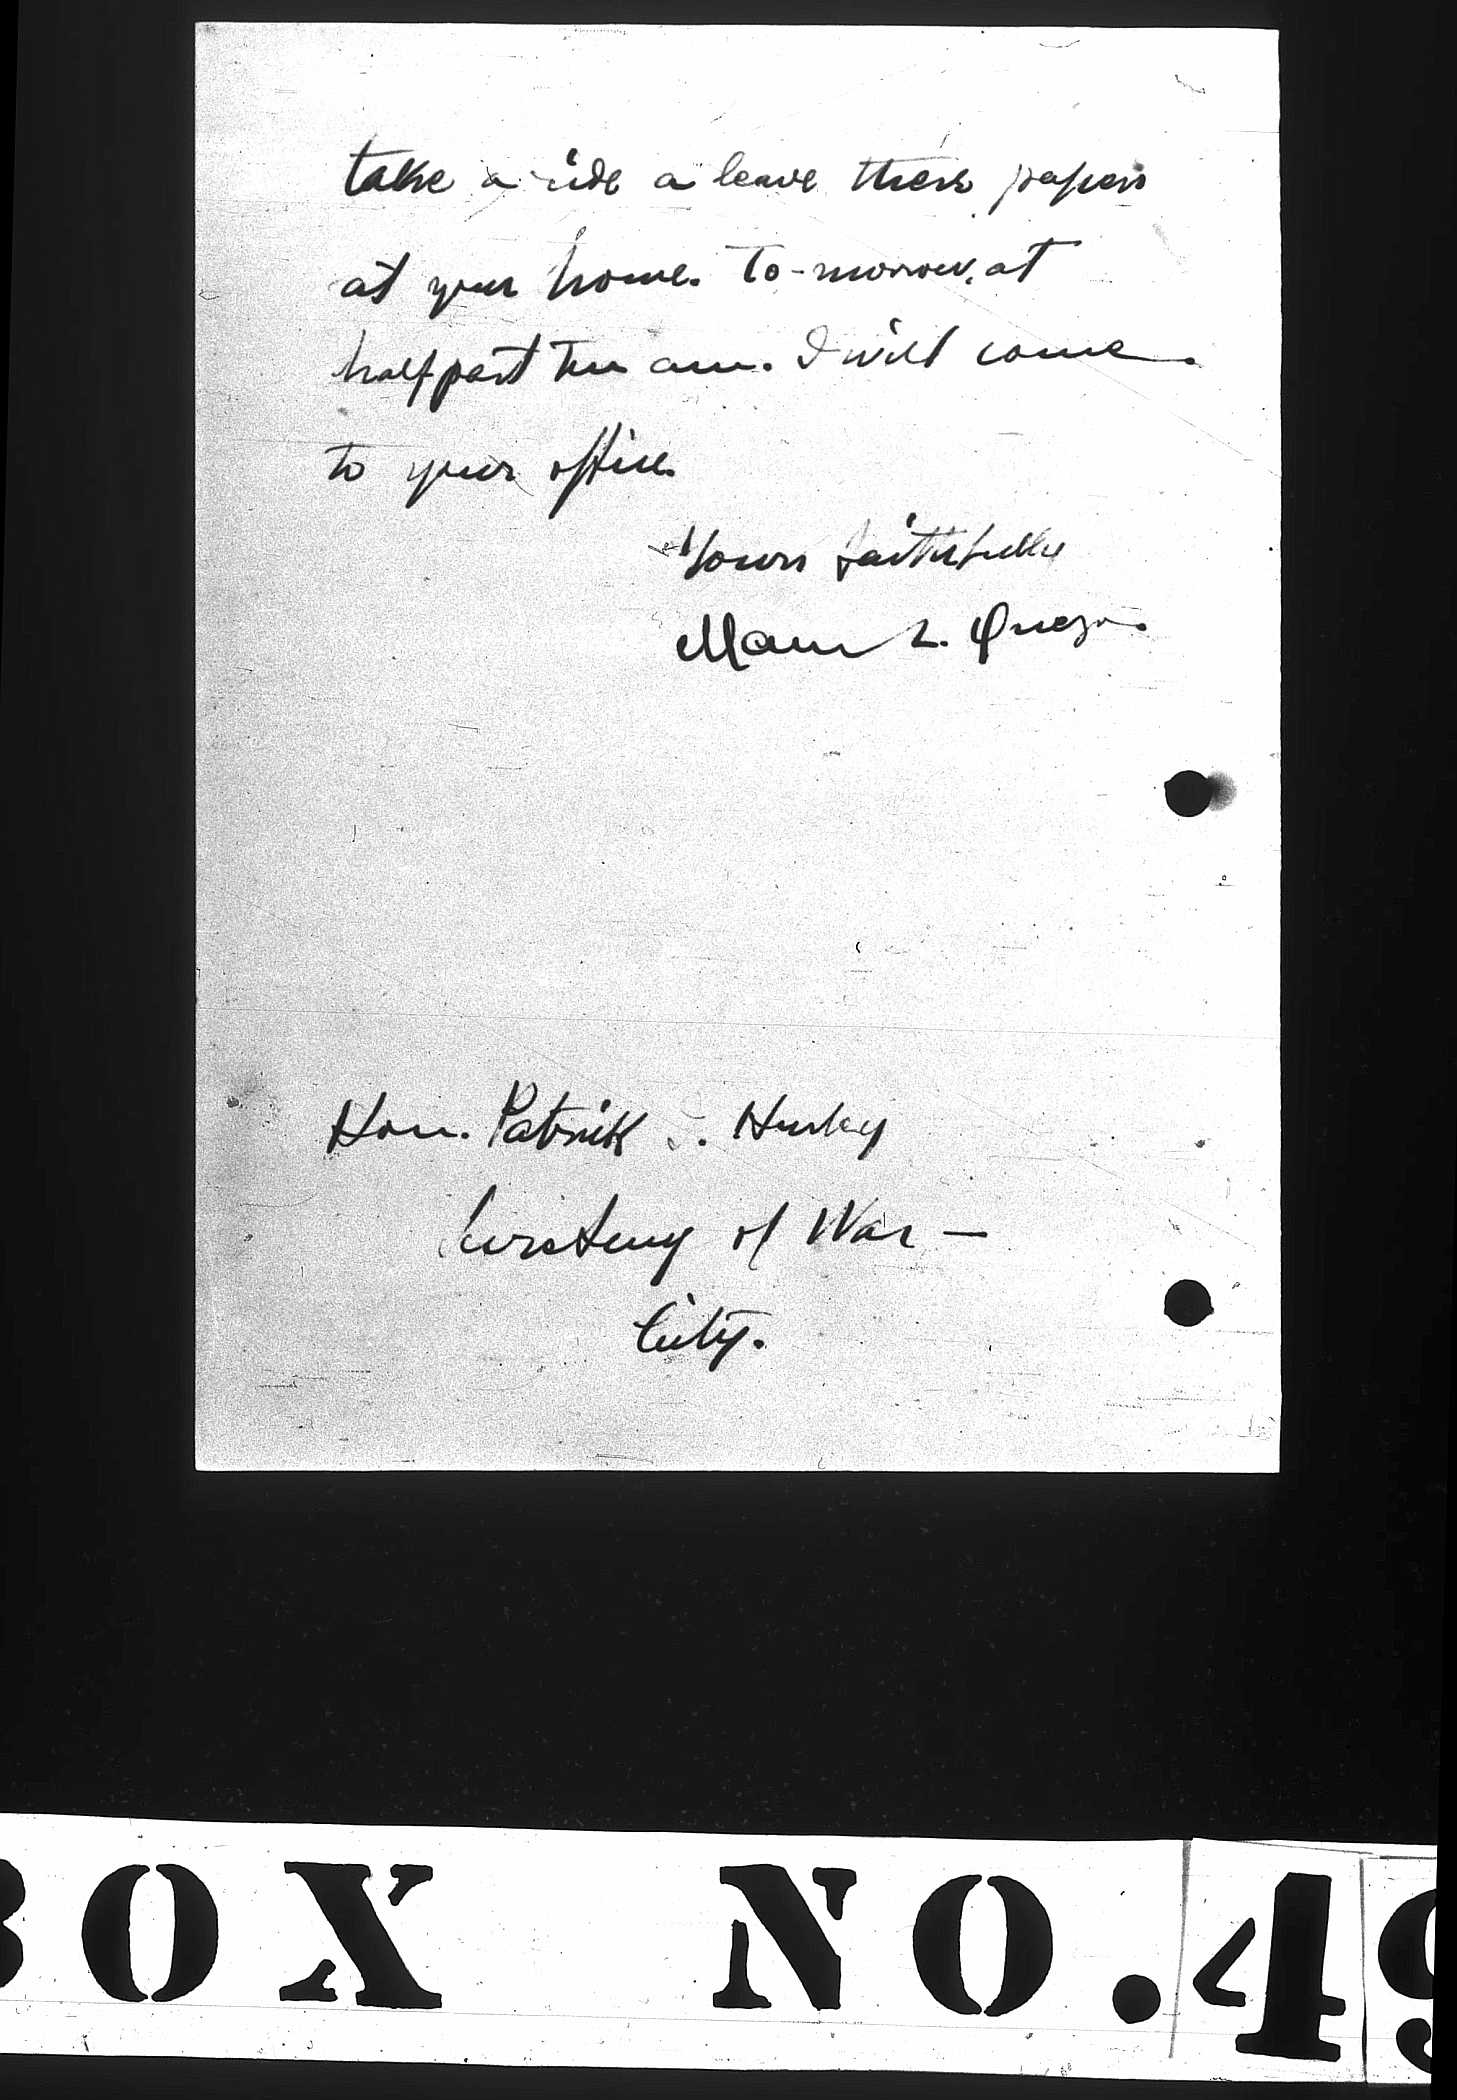 take a ride a leave these papers
at your home. To-morrow, at
half past ten am. I will come
to your office.
Yours faithfully
Manuel L. Quezon
Hon. Patrick J. Hurley
Secretary of War —
City.
BOX NO. 49